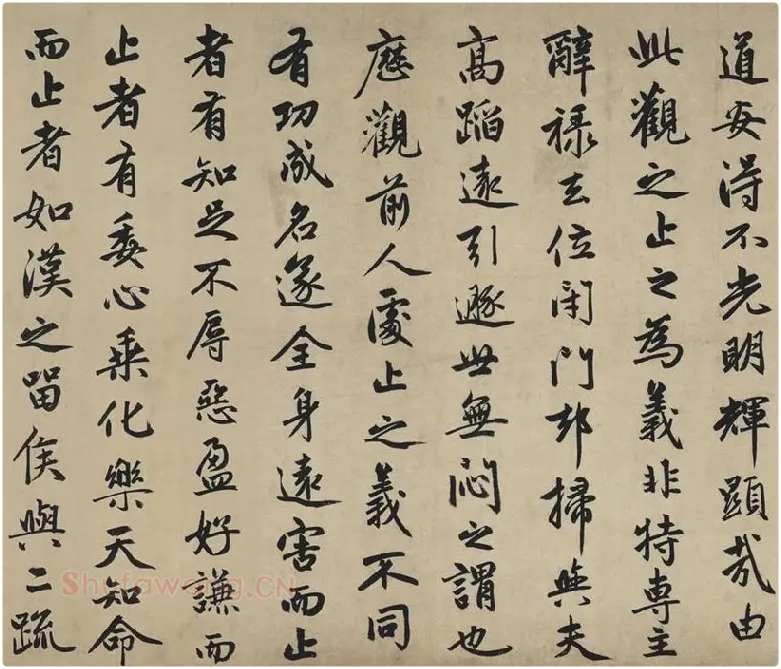 道安得不光明輝顯哉由
此觀之止之為義非特專主
辭祿去位閉門却掃與夫
高蹈遠引遯世無悶之謂也
歷觀前人處止之義不同
有功成名遂全身遠害而止
者有知足不辱惡盈好謙而
止者有委心乘化樂天知命
而止者如漢之留侯與二疏
Shufawang.CN